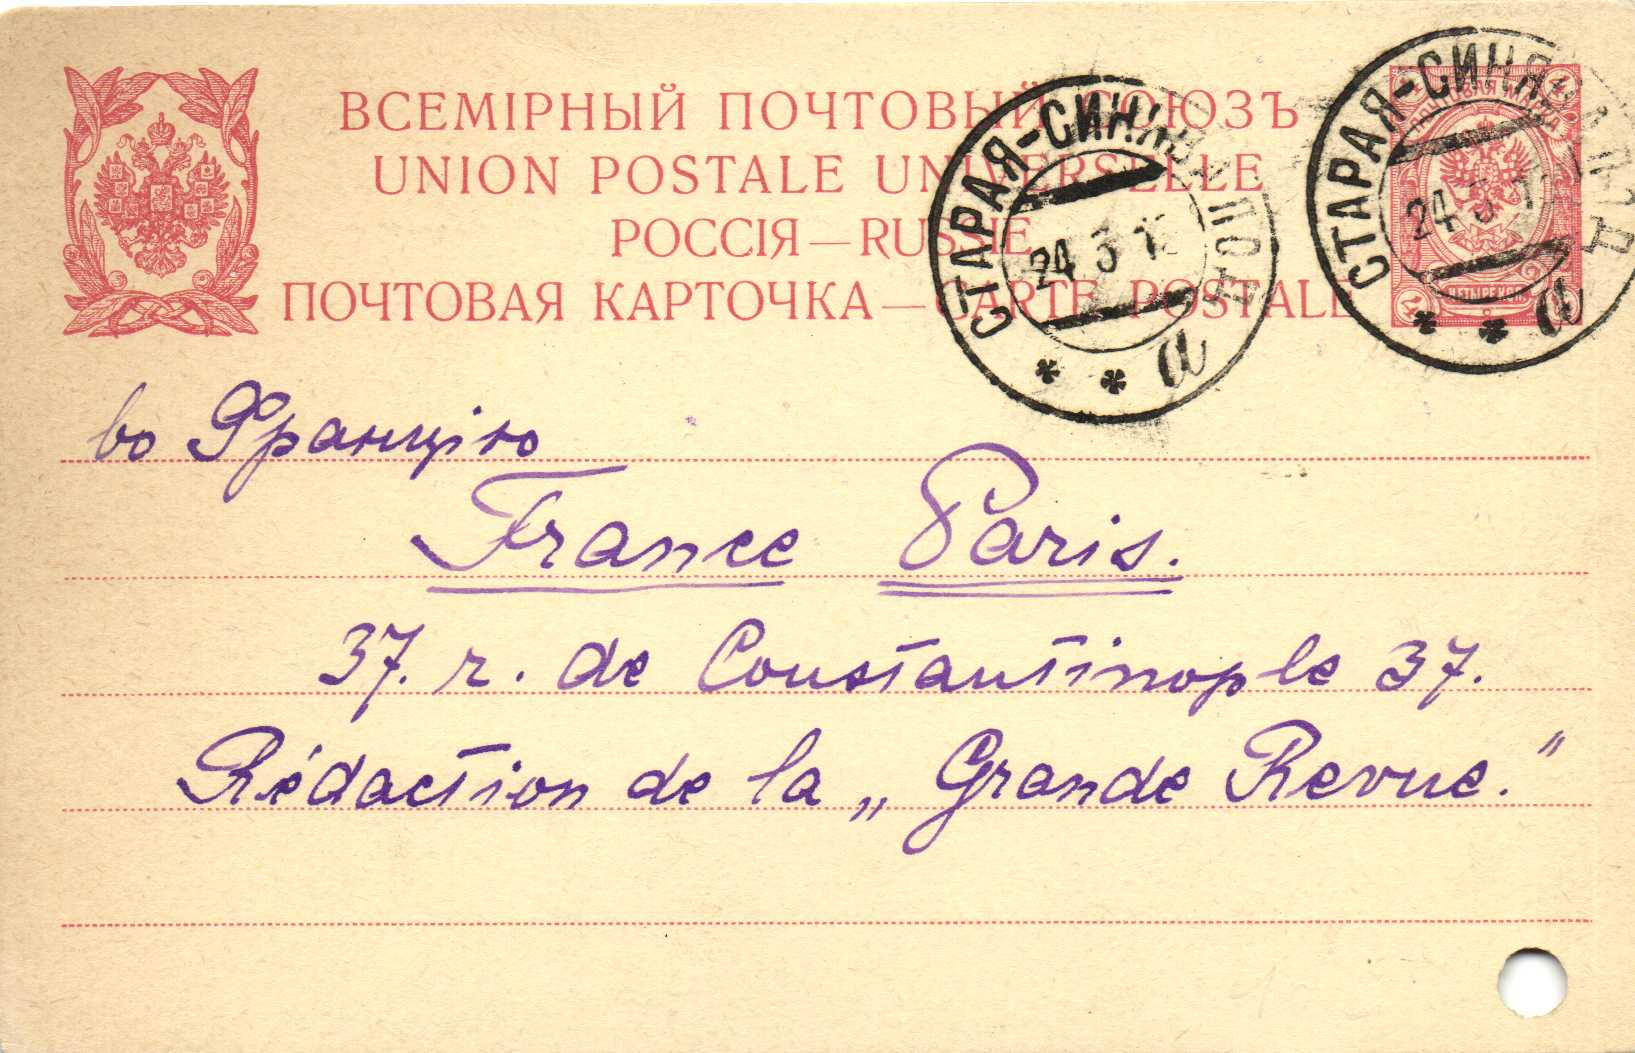 ВСЕМІРНЫЙ ПОЧТОВЫЙ СОЮЗЪ
UNION POSTALE UNIVERSELLE
РОССІЯ — RUSSIE
ПОЧТОВАЯ КАРТОЧКА — CARTE POSTALE
СТАРАЯ-СИНЯВА ПОД
24 3
* * а
ПОЧТОВАЯ МАРКА
СТАРАЯ-СИНЯВА ПОД
24 3
4
* * а
во Францію
France Paris.
37. r. de Constantinople 37.
Rédaction de la „Grande Revue."